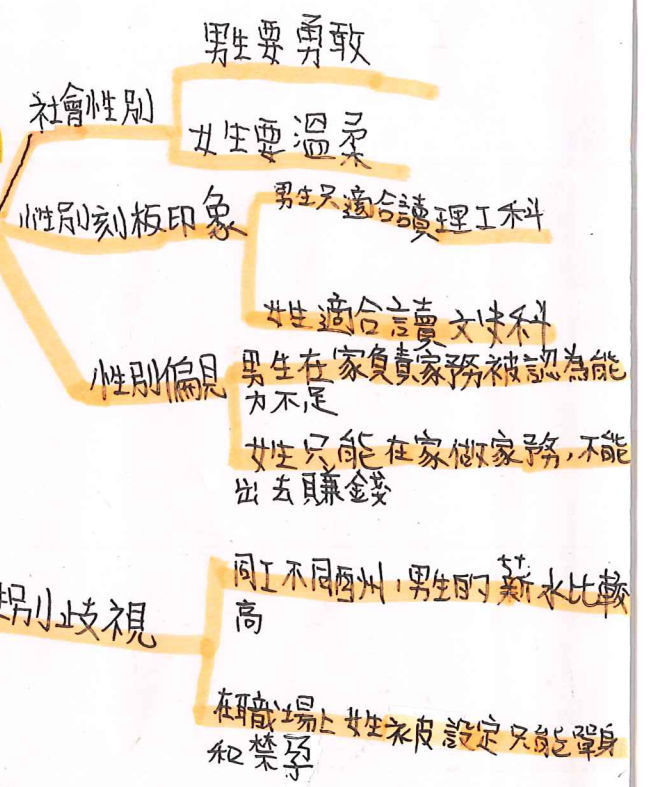 男生要勇敢
社會性別
女生要溫柔
性別刻板印象
男生只適合讀理工科
女生適合讀文史科
性別偏見
男生在家負責家務被認為能
力不足
女生只能在家做家務,不能
出去賺錢
別歧視
同工不同酬,男生的薪水比較
高
在職場上女生被設定只能單身
和禁孕